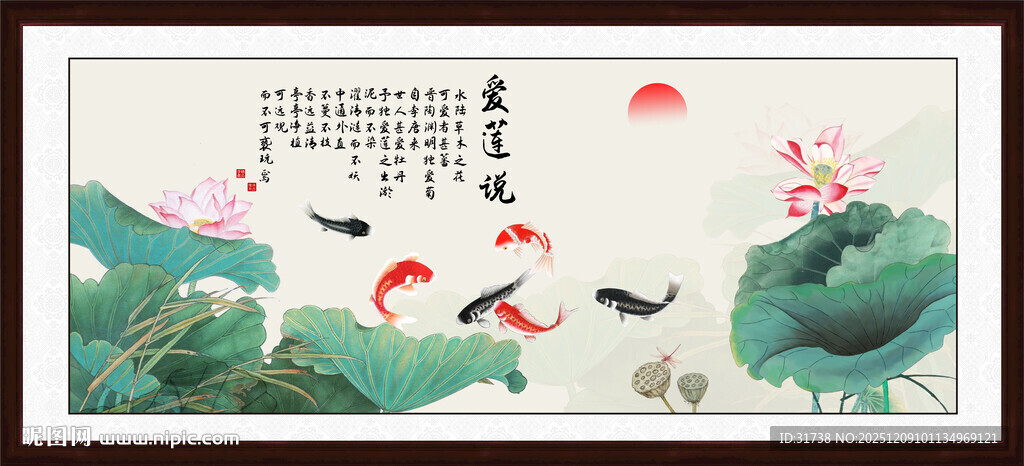 爱莲说
水陆草木之花
可爱者甚蕃
晋陶渊明独爱菊
自李唐来
世人甚爱牡丹
予独爱莲之出淤
泥而不染
濯清涟而不妖
中通外直
不蔓不枝
香远益清
亭亭净植
可远观
而不可亵玩焉
昵图网 www.nipic.com
ID:31738 NO:20251209101134969121